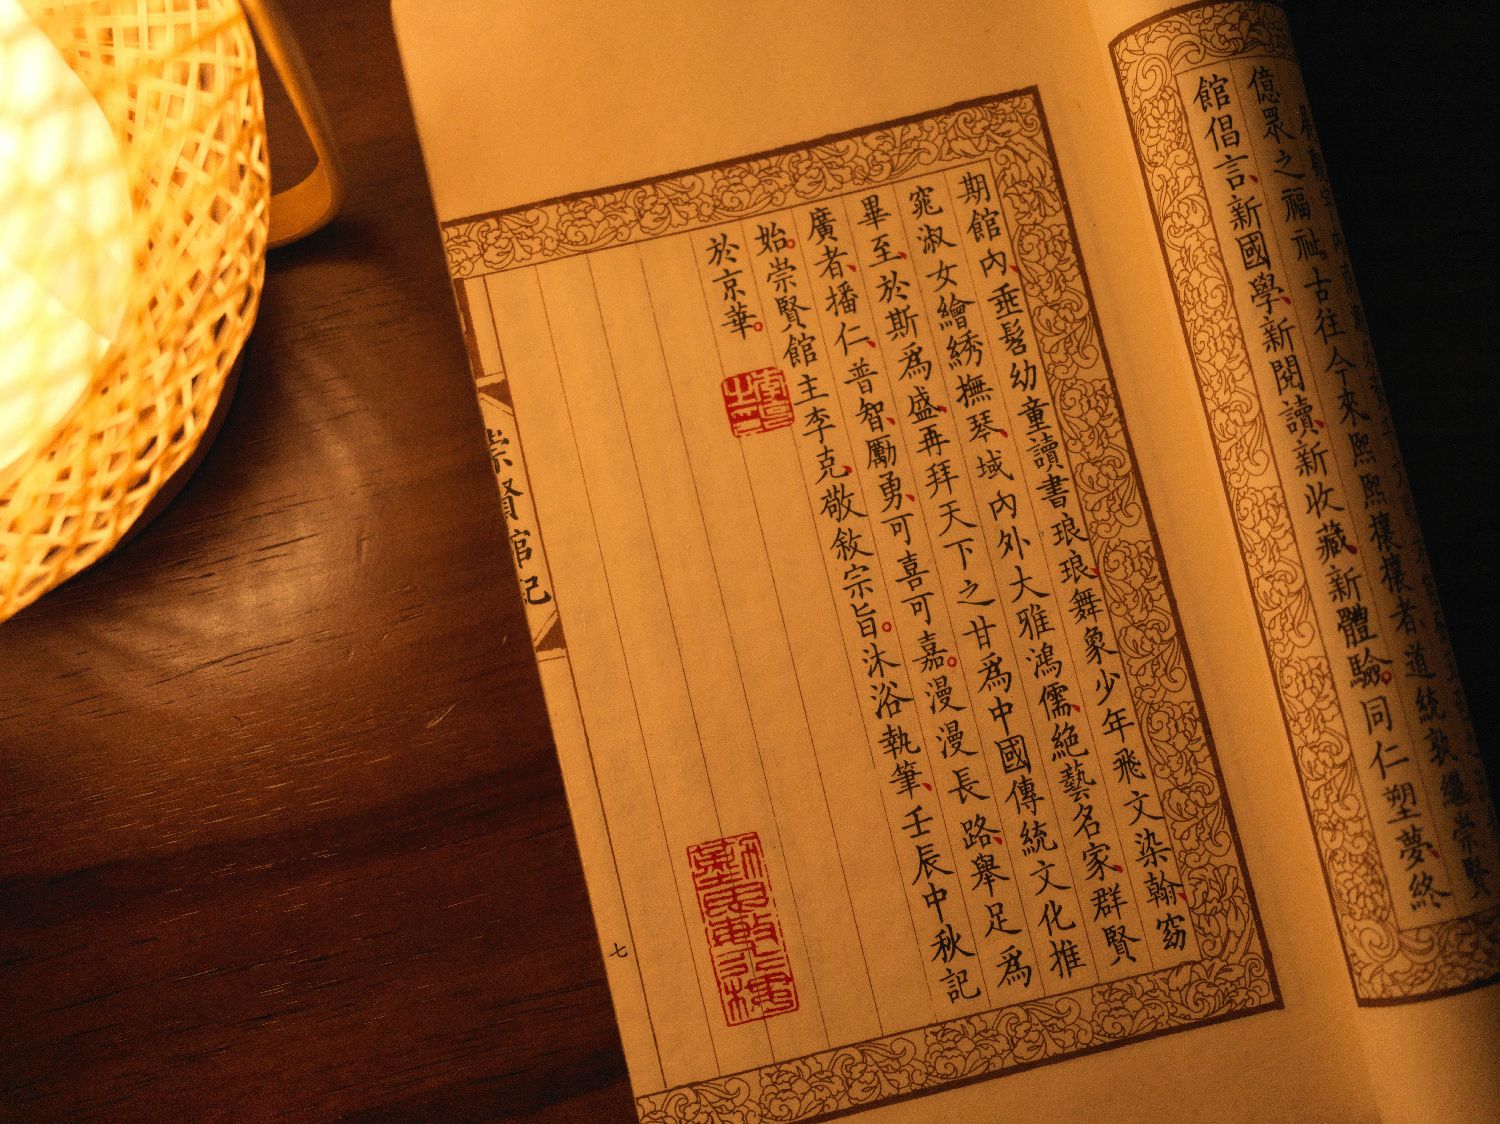 億眾之福祉。古往今來熙熙攘攘者、道統敦繼崇賢
館倡言、新國學、新閱讀、新收藏、新體驗。同仁塑夢、終
期館內、垂髫幼童讀書琅琅、舞象少年飛文染翰、窈
窕淑女繪綉撫琴、域內外大雅鴻儒、絕藝名家、群賢
畢至、於斯爲盛、再拜天下之甘爲中國傳統文化推
廣者、播仁、普智、勵勇、可喜可嘉。漫漫長路、舉足爲
始。崇賢館主李克、敬敘宗旨。沐浴執筆、壬辰中秋記
於京華。
崇賢館記
七